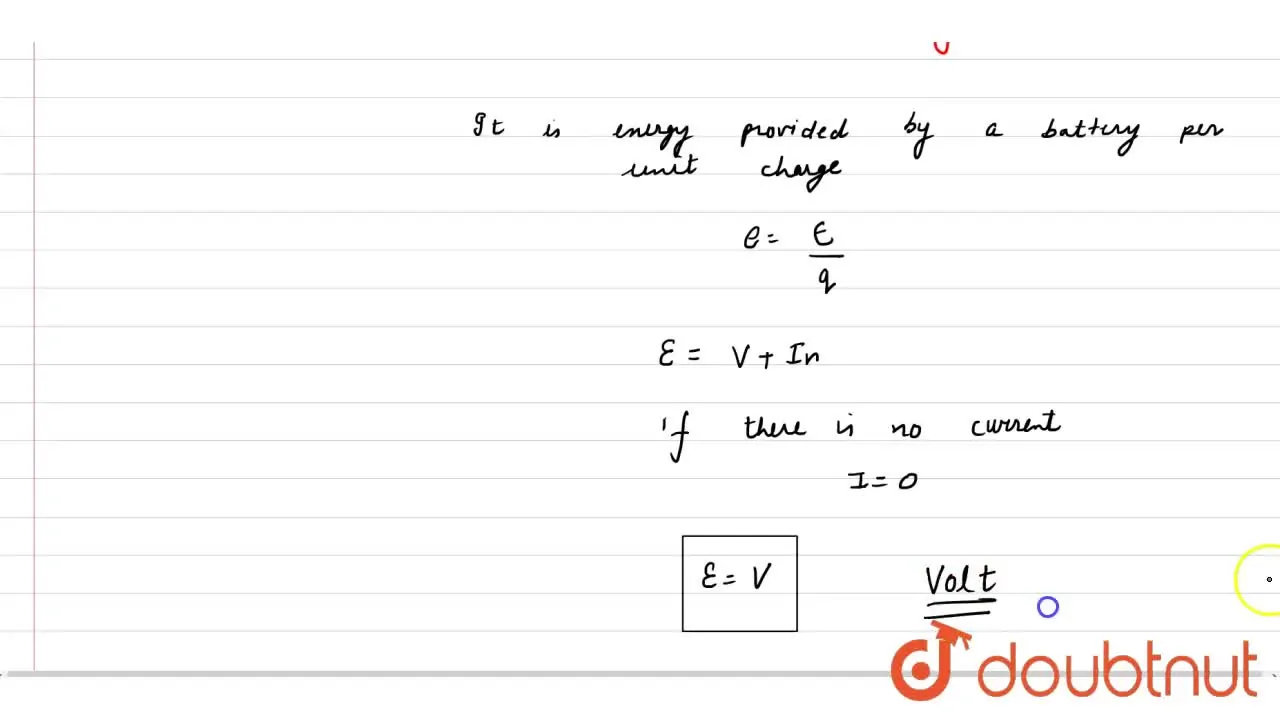 It is energy provided by a battery per
unit charge
e = E/q
ε = V + Ir
if there is no current
I = 0
ε = V
Volt
doubtnut